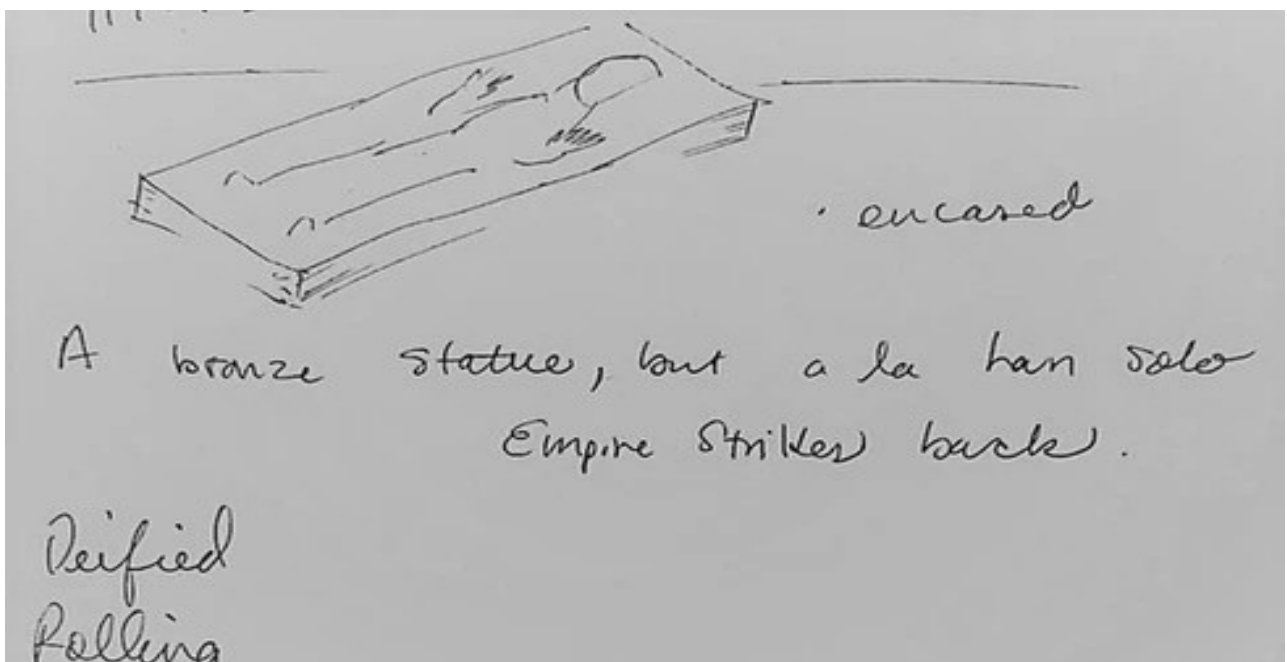 · encased
A bronze statue, but a la han solo
Empire Strikes back.
Deified
Rolling